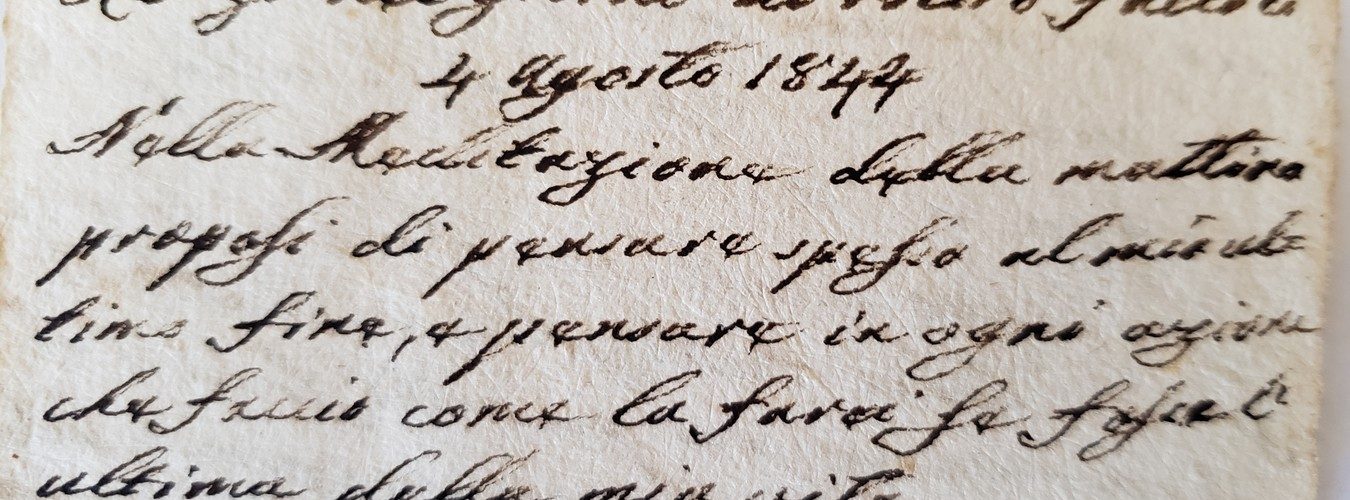 4 Agosto 1844
Nella Meditazione della mattina
proposi di pensare spesso al mio ul=
timo fine, e pensare in ogni azione
che faccio come la farei se fosse l'
ultima della mia vita